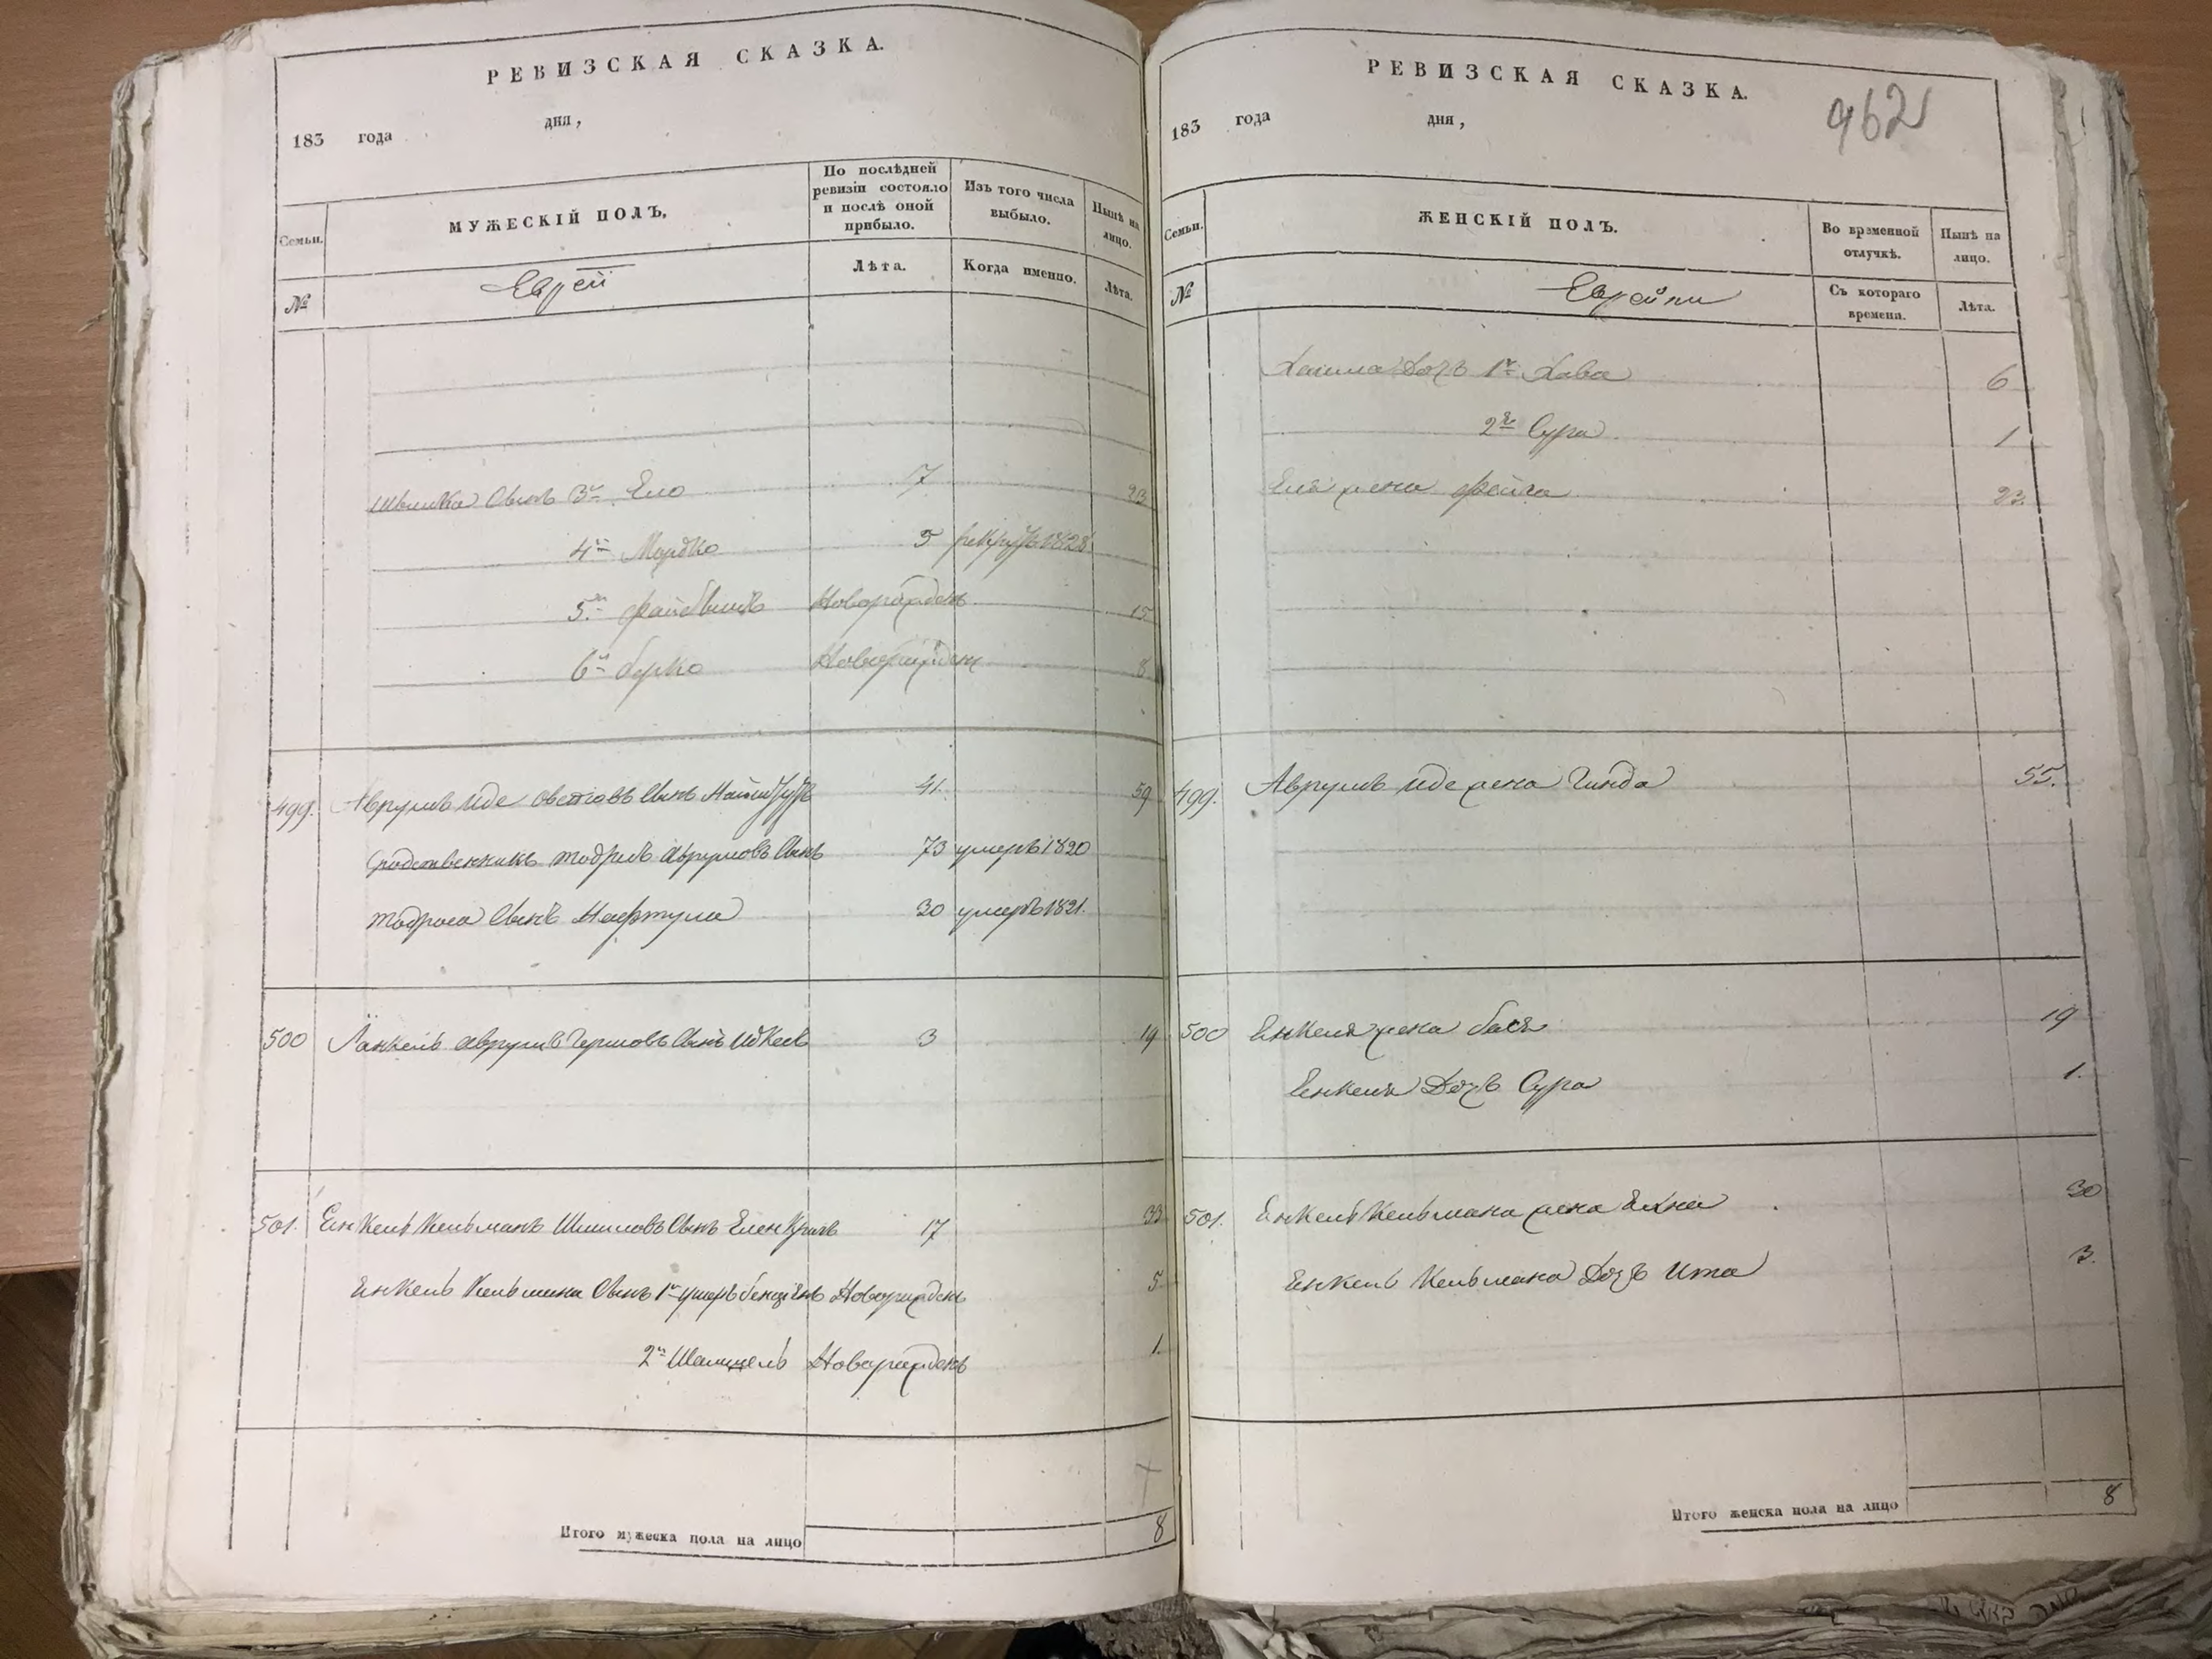 РЕВИЗСКАЯ СКАЗКА.
183 года дня,
Семьи.
МУЖЕСКІЙ ПОЛЪ.
По послѣдней ревизіи состояло и послѣ оной прибыло.
Изъ того числа выбыло.
Нынѣ на лицо.
№
Еврей
Лѣта.
Когда именно.
Лѣта.
Сынъ 3й Ело 7 23
4й Мордко 5 рекрутъ 1828
5й Файвишъ Новорожденъ 15
6й Берко Новорожден 8
499. Аврумъ Иде сынъ 41. 59
Сродственникъ Тодрисъ Аврумовъ Сынъ 73 умеръ 1820
Тодроса Сынъ Нафтула 30 умеръ 1821.
500 Янкель Аврумъ Гершовъ Сынъ 3 19
501. Енкель Кельманъ Шмиловъ Сынъ 17 33
Енкель Кельмана Сынъ 1й Новорожденъ 5
2й Шмуель Новорожденъ 1.
Итого мужеска пола на лицо 8
РЕВИЗСКАЯ СКАЗКА.
962
183 года дня,
Семьи.
ЖЕНСКІЙ ПОЛЪ.
Во временной отлучкѣ.
Нынѣ на лицо.
№
Еврейки
Съ котораго времени.
Лѣта.
Хаима Дочь 1я Хава 6
2я Сура 1
Еля жена Фейга 23
499. Аврумъ Иде жена Гинда 55.
500 Енкеля жена Бася 19
Енкеля Дочь Сура 1.
501. Енкель Кельмана жена Хана 30
Енкель Кельмана Дочь Ита 3.
Итого женска пола на лицо 8